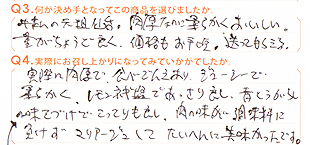 Q3.何が決め手となってこの商品を選びましたか。
牛たんの元祖仙台。肉厚なのに柔らかく おいしい。
量がちょうど良く、価格もお手頃。送ってもらえる。
Q4.実際にお召し上がりになってみていかがでしたか。
実際の肉厚で、食べごたえあり、ジューシーで
柔らかく、レモンネギ塩であっさり良し、昔とうがらし
味でつけて こってりも良し、肉の味が調味料に
負けず マリアージュして たいへんに美味かったです。